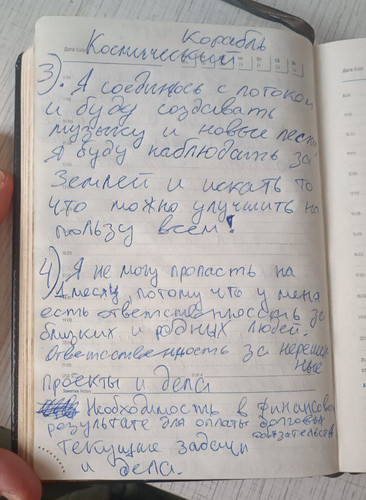 Корабль
Космический
3). Я соединюсь с потоком
и буду создавать
музыку и новые песни
Я буду наблюдать за
Землей и искать то
что можно улучшить на
пользу всем!
4) Я не могу пропасть на
1 месяц, потому что у меня
есть ответственность за
близких и родных людей.
Ответственность за нерешен
ные
проекты и дела
Необходимость в финансовом
результате для оплаты долговых
обязательств
Текущие задачи
и дела.